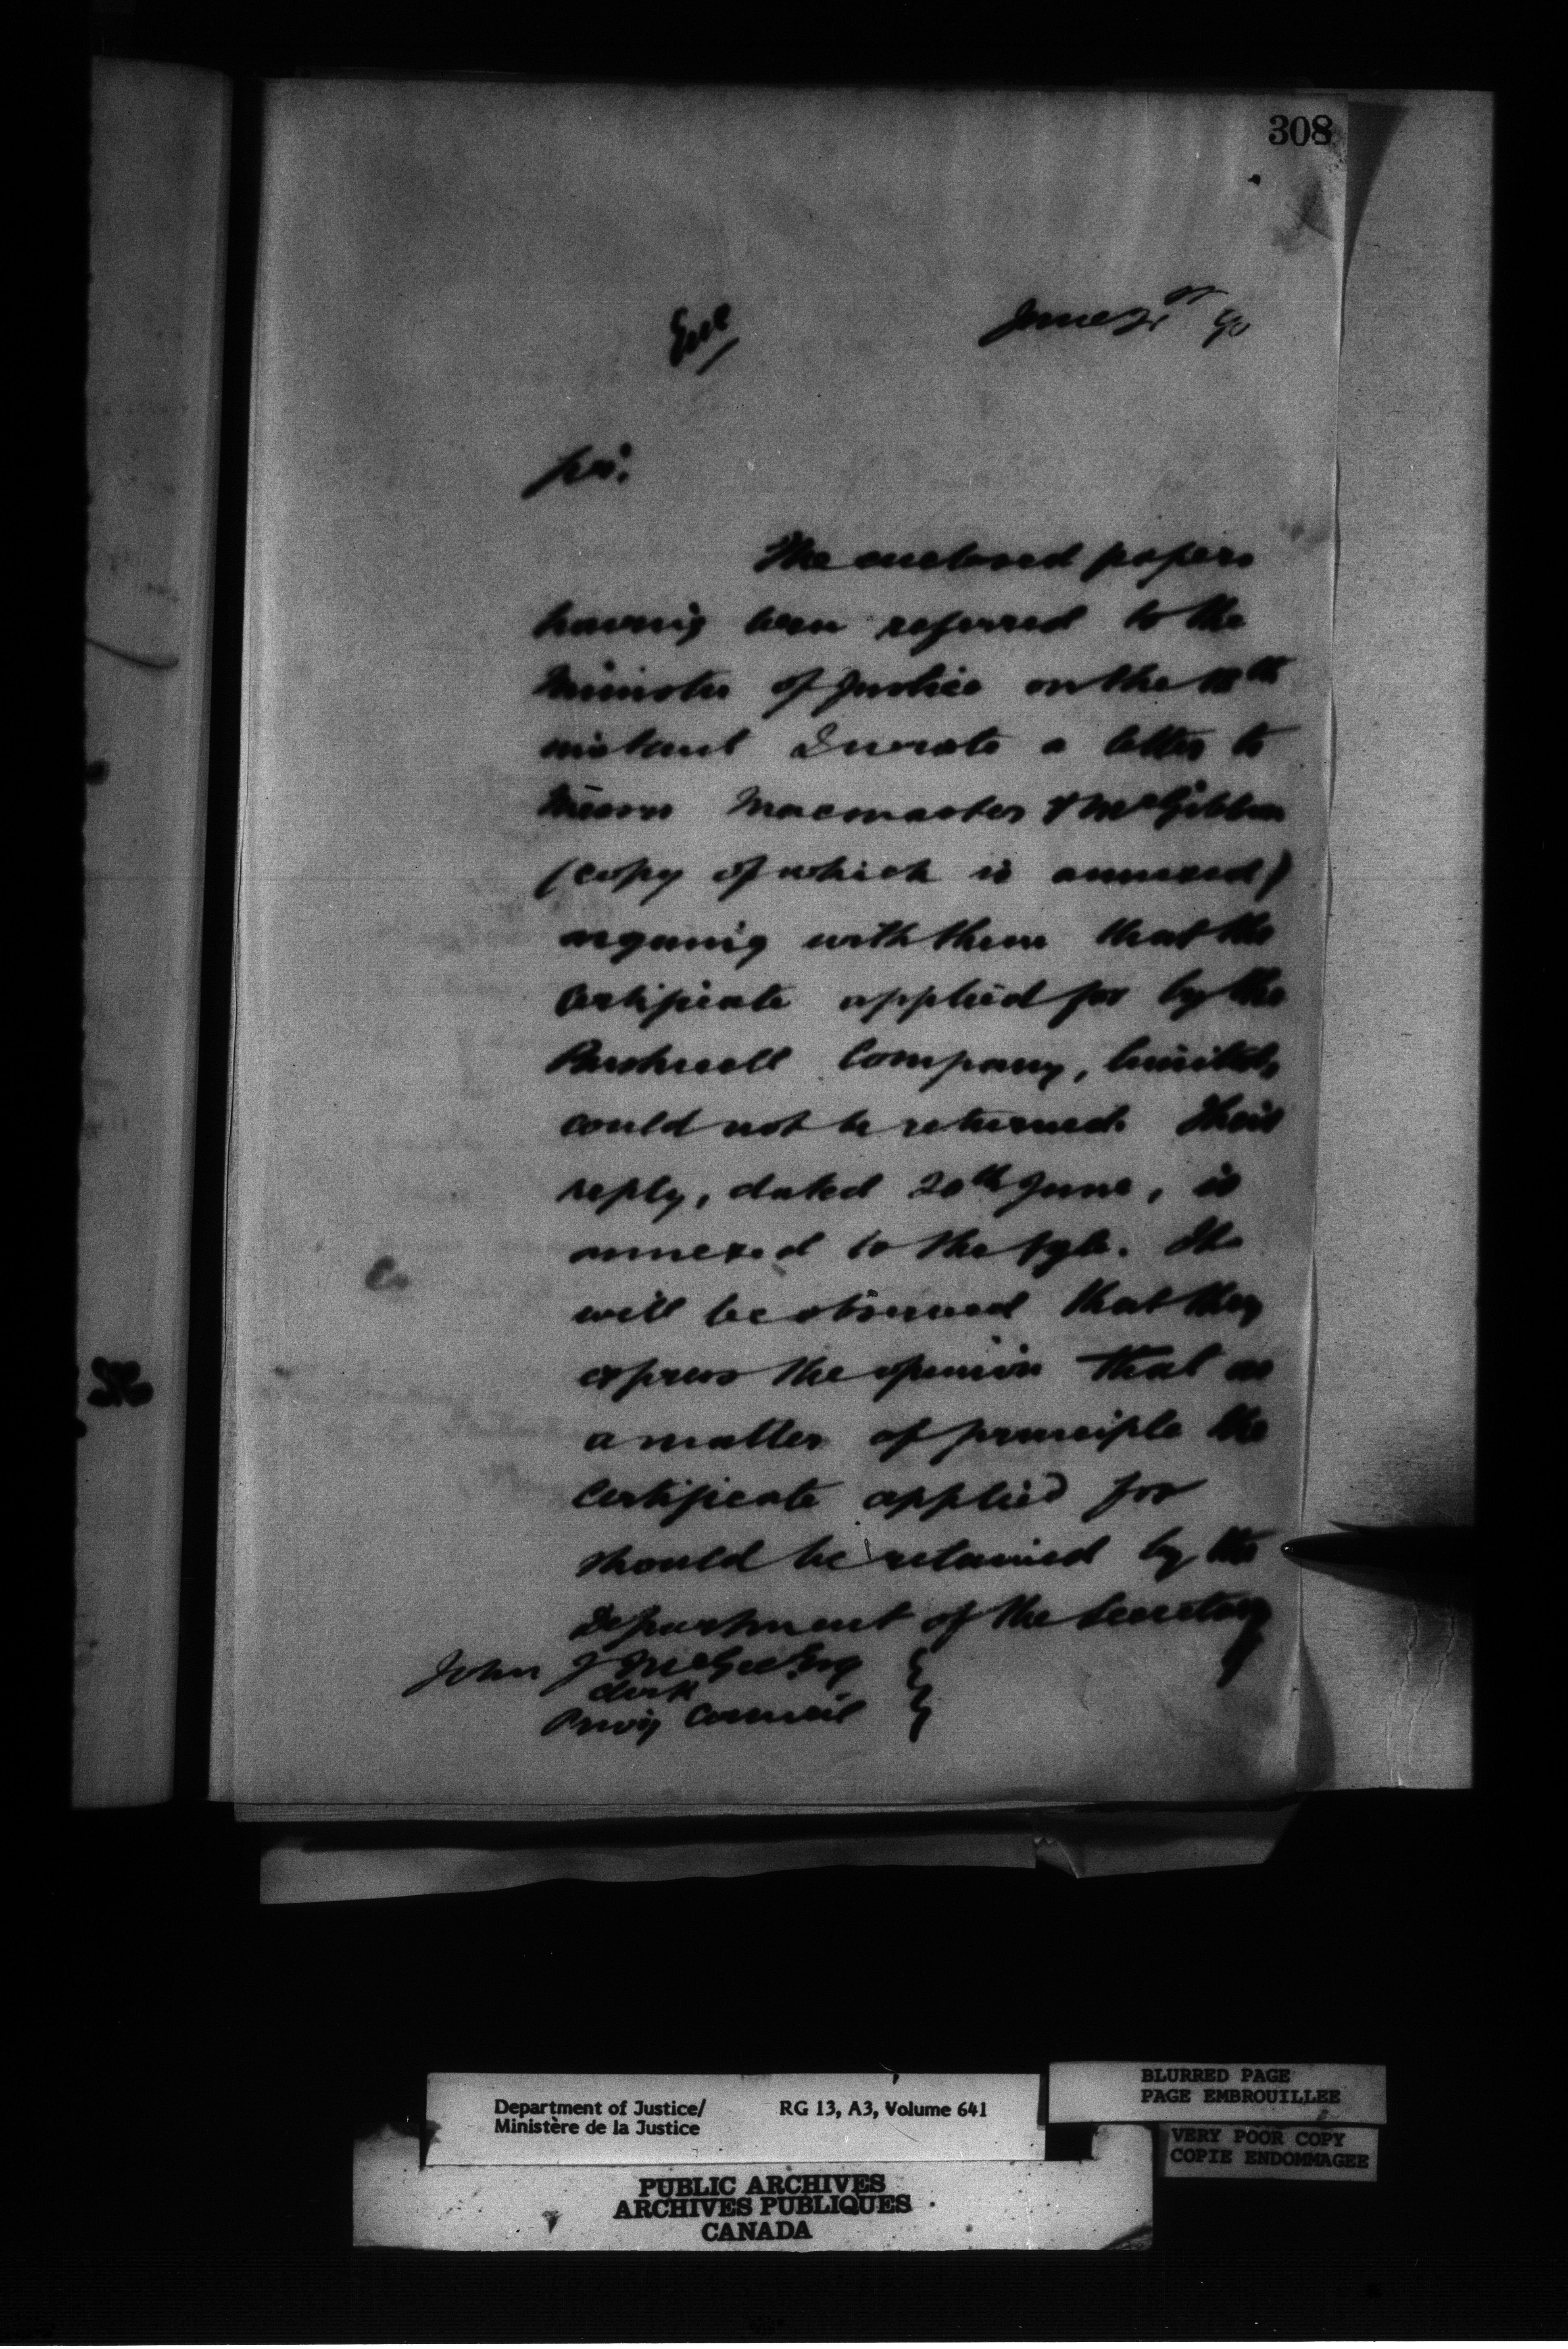 308
Encl
June 21st 90
Sir,
The enclosed papers
having been referred to the
Minister of Justice on the 18th
instant I wrote a letter to
Messrs Macmaster & McGibbon
(copy of which is annexed)
arguing with them that the
Certificate applied for by the
Company, limited,
could not be returned. Their
reply, dated 20th June, is
annexed to the fyle. It
will be observed that they
express the opinion that as
a matter of principle the
certificate applied for
should be retained by the
Department of the Secretary
John J McGee Esq
Clerk
Privy Council
Department of Justice/
Ministère de la Justice
RG 13, A3, Volume 641
BLURRED PAGE
PAGE EMBROUILLEE
VERY POOR COPY
COPIE ENDOMMAGEE
PUBLIC ARCHIVES
ARCHIVES PUBLIQUES
CANADA